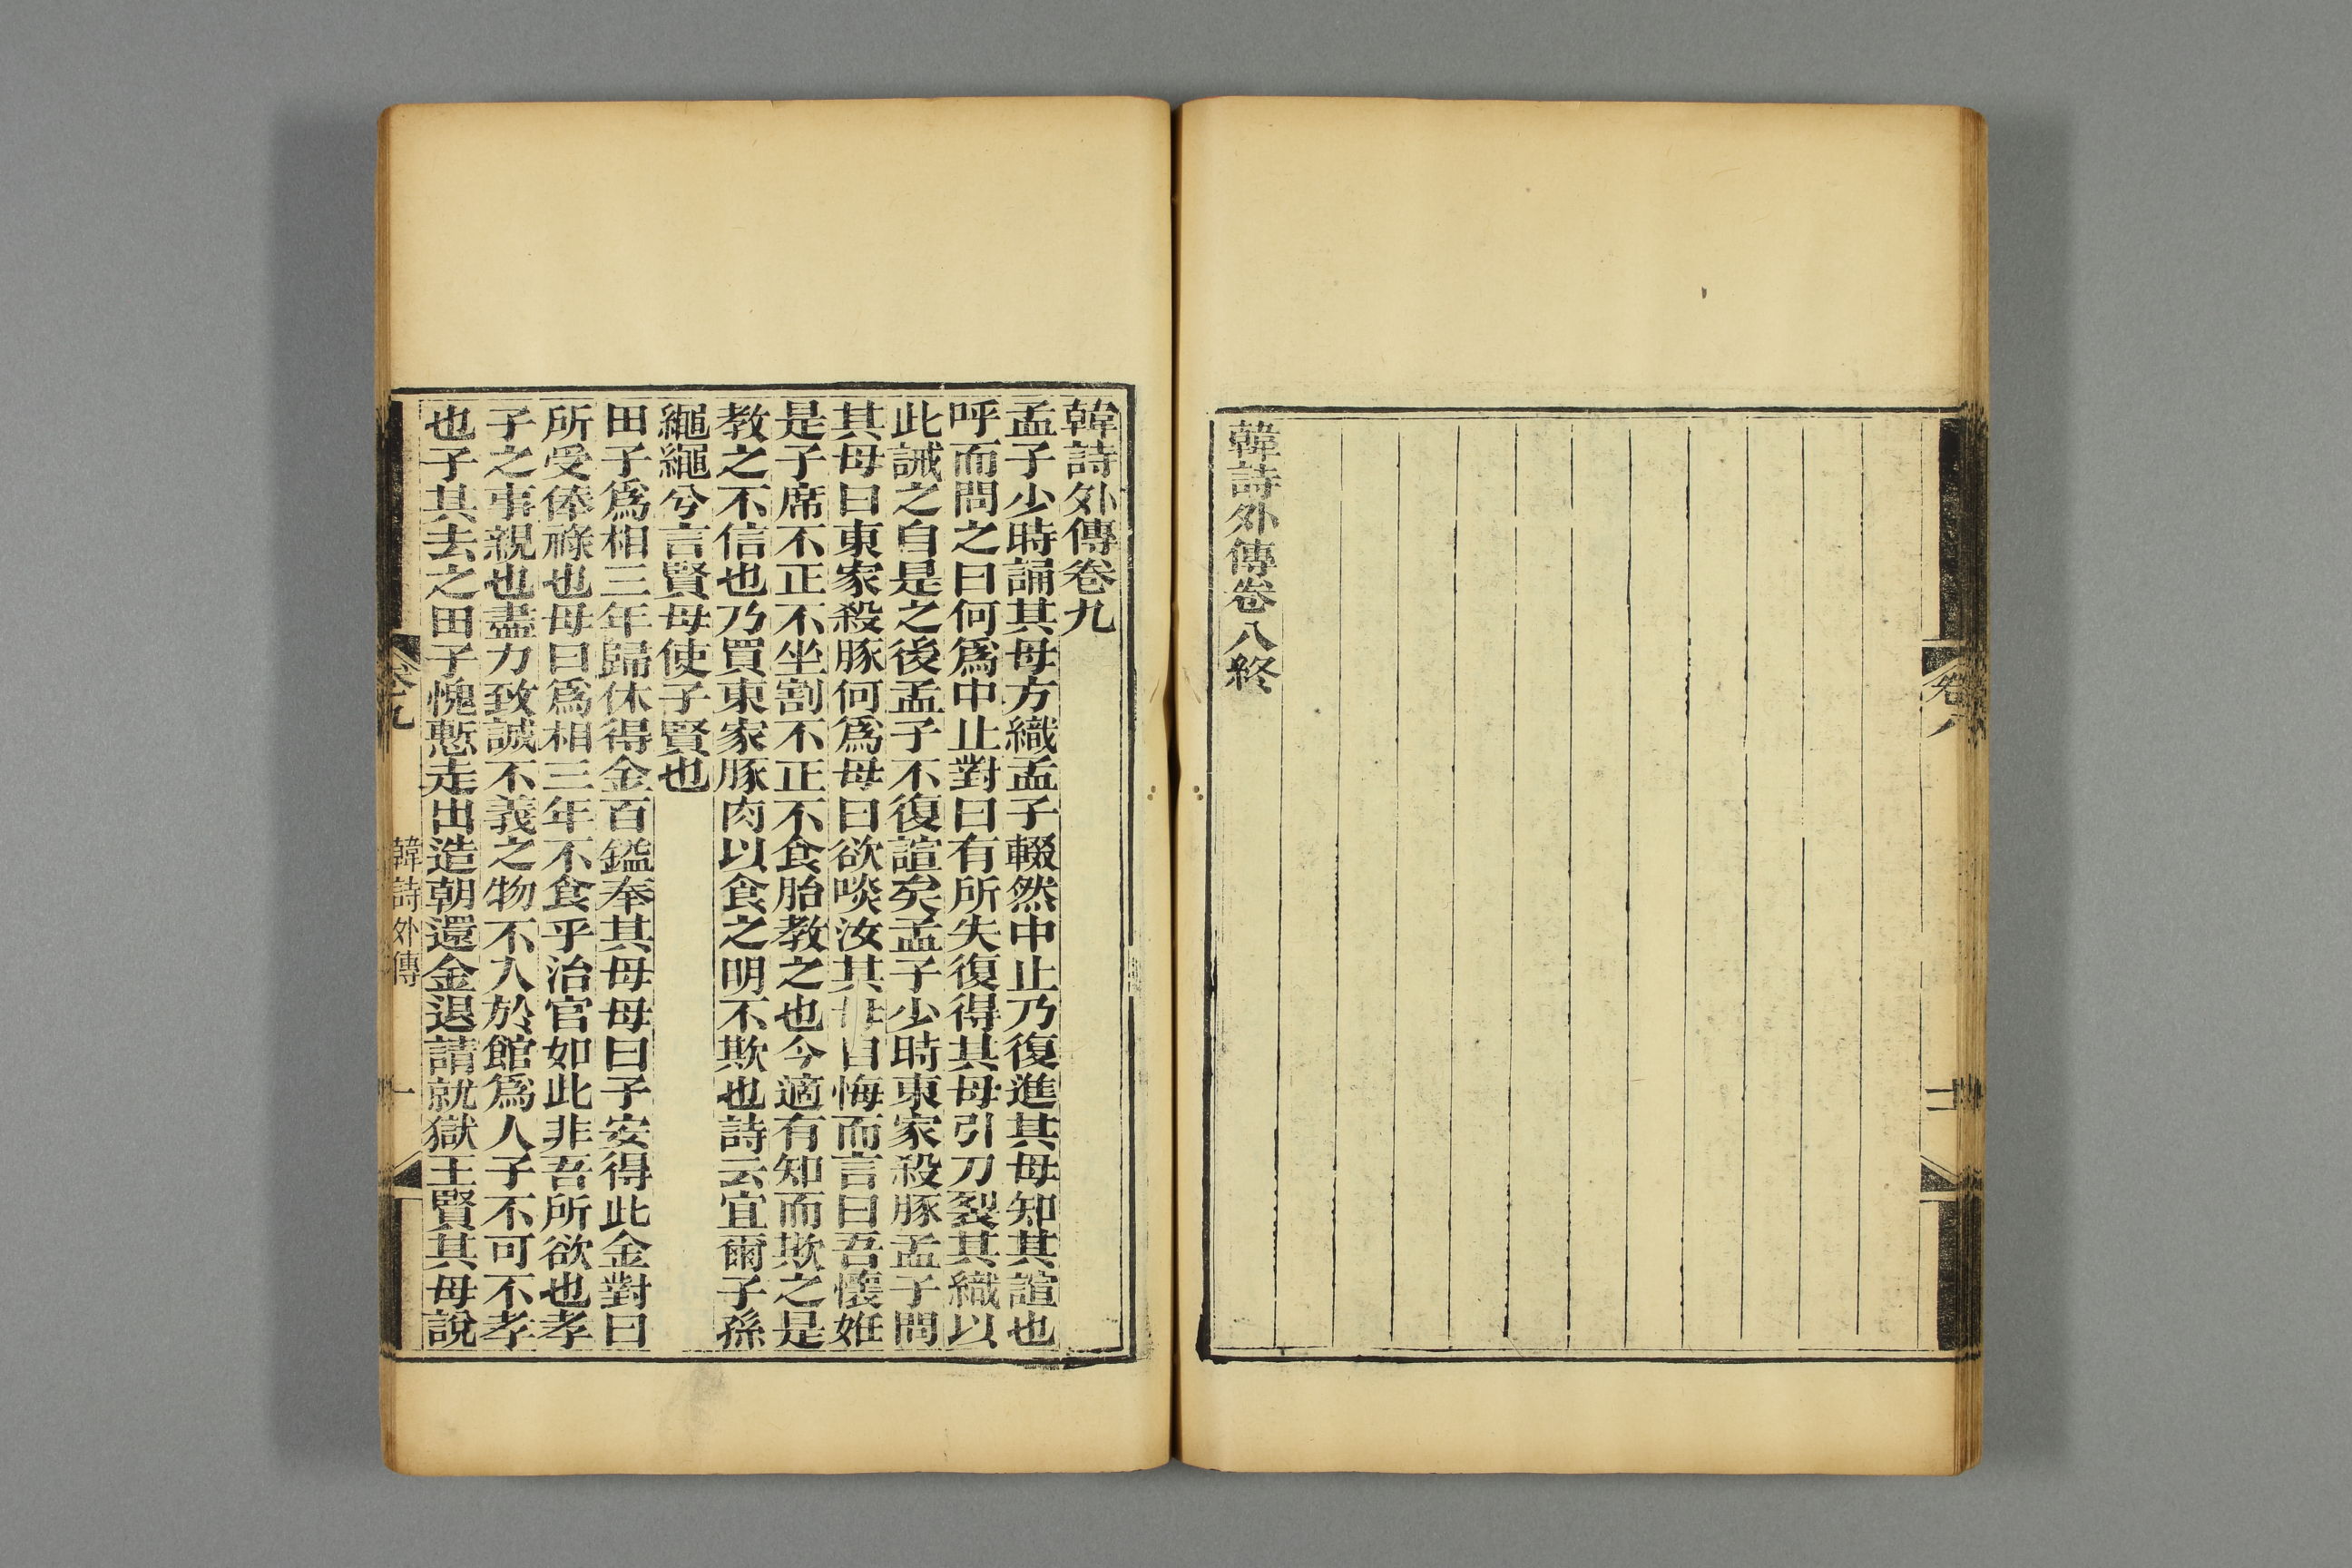 韓詩外傳卷八終
卷八
韓詩外傳卷九
孟子少時誦其母方織孟子輟然中止乃復進其母知其諠也
呼而問之曰何爲中止對曰有所失復得其母引刀裂其織以
此誡之自是之後孟子不復諠矣孟子少時東家殺豚孟子問
其母曰東家殺豚何爲母曰欲啖汝其母自悔而言曰吾懷姙
是子席不正不坐割不正不食胎教之也今適有知而欺之是
教之不信也乃買東家豚肉以食之明不欺也詩云宜爾子孫
繩繩兮言賢母使子賢也
田子爲相三年歸休得金百鎰奉其母母曰子安得此金對曰
所受俸祿也母曰爲相三年不食乎治官如此非吾所欲也孝
子之事親也盡力致誠不義之物不入於館爲人子不可不孝
也子其去之田子愧慙走出造朝還金退請就獄王賢其母說
卷九 韓詩外傳 一